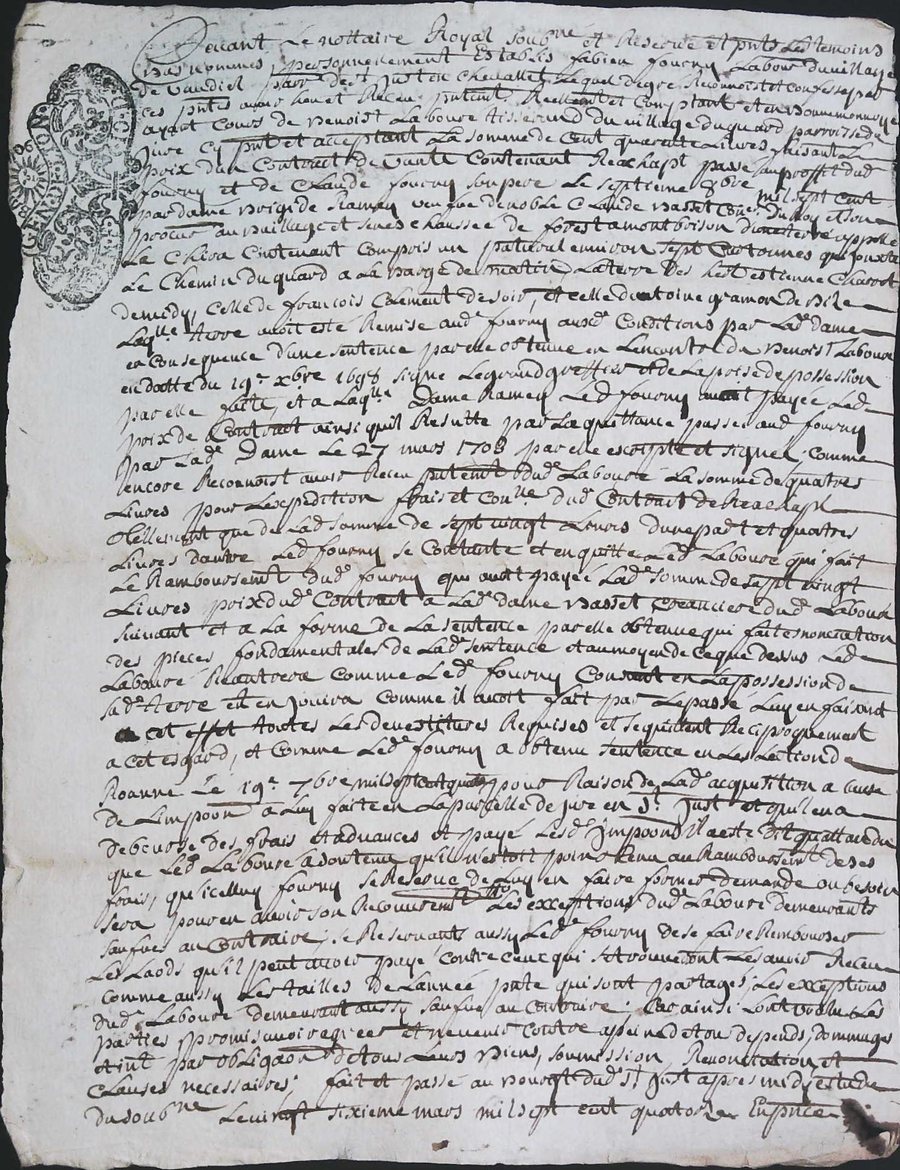 Devant Le nottaire Royal soubne et Reservé et pnts Les temoins
bas nommes personnellement Establis fabien fourny Labour du village
de parr de st Just en Chevallet Lequel de gré Reconnoist et Confesse par
ces pntes avoir heu et Receu putemt Reellemt et Comptant et en bonne monnoye
ayant Cours de benoist Laboure tisserand du village du quard parroisse de
Jure Cy pnt et acceptant La somme de Cent quarente Livres faisant Le
prix d'un Contract de vante Contenant Reachapt passé au proffit dud
fourny et de Claude fourny son pere Le septieme mil sept cent
par dame de Ramey veufve de noble Claude basset Coner du Roy et son
procur au bailliage et senechaussee de forest a montbrison d'une terre appellé
La Contenant Compris un pationl environ sept Cartonnes qui Jouxte
Le Chemin du quard a La de matin, La terre des hers estienne Charret
de midy, Celle de francois Clement de soir, et celle d'antoine gramon de bize
Laqlle terre avoit esté Remise aud fourny ausd Conditions par Lad dame
en Consequence d'une sentence par elle obtenue en Lencontre du benoist Laboure
en datte du 19e xbre 1698 signe Legrand greffier et de La prise de possession
par elle faite, et a Laqlle Dame Ramey Led fourny avoit payée Led
prix de Contract ainsi qu'il Resulte par La quittance passee aud fourny
par Lad Dame Le 27 mars 1708 par elle escripte et signee, comme
encore Reconnoist avoir Receu putemt dud Laboure La somme de quatres
Livres pour Lexpedition frais et conlle dud Contract de Reachapt
tellement que de Lad somme de sept vingt Livres d'une part et quatres
Livres dautre Led fourny se Contante et en quitte Led Laboure qui fait
Le Ramboursemt dud fourny qui avoit payée Lad somme de sept vingt
Livres prix dud Contract a Lad dame basset Creanciere dud Laboure
suivant et a La forme de La sentence par elle obtenue qui fait enonciation
des pieces fondamentales de Lad sentence et au moyen de ce que dessus Led
Laboure Rantrera comme Led fourny Consant en La possession de
sad terre et en jouira Comme il avoit fait par Le passé Luy en faisant
a cet effet toutes Les devestitures Requises et se quittent Reciproquement
a cet esgard, et Comme Led fourny a obtenu sentence en Lelection de
Roanne Le 19e 7bre mil sept cent pour Raison de Lad acquisition a cause
de Limpoon a Luy faite en La parcelle de Jure en st Just et qu'il en a
deboursé des frais et advances et payé Lesd jmpoons il a esté dit quattandu
que Led Laboure a soutenu qu'il n'estoit point tenu au Ramboursemt de ses
frais, qu'icelluy fourny se Reserve de Luy en faire former demande au besoin
sera pour en avoir son Recouvremt Les exceptions dud Laboure demeurants
saufves au Contraire; se Reservants aussy Led fourny de se faire Rembourser
Les Laods qu'il peut avoir payé Contre ceux qui se trouveront Les avoir Receu
comme aussy Les tailles de Lannée pnte qui sont partagés; Les exceptions
dud Laboure demeurant aussy saufves au Contraire; Car ainsi Lont voulu Les
parties promis avoir agreer et ne venir Contre a peine de tous depends, dommages
et int par obligaon de tous Leurs biens, soumission, Renonciation et
Clauses necessaires; fait et passé au bourgt dud st Just apres midy estude
du soubne Le vingt sixieme mars mil sept cent quatorze En pnce